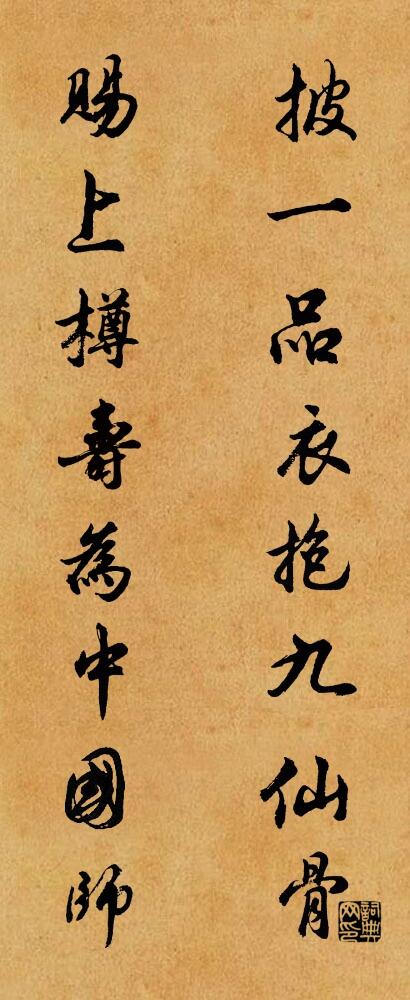 披一品衣抱九仙骨
賜上樽壽為中國師
詞典网印